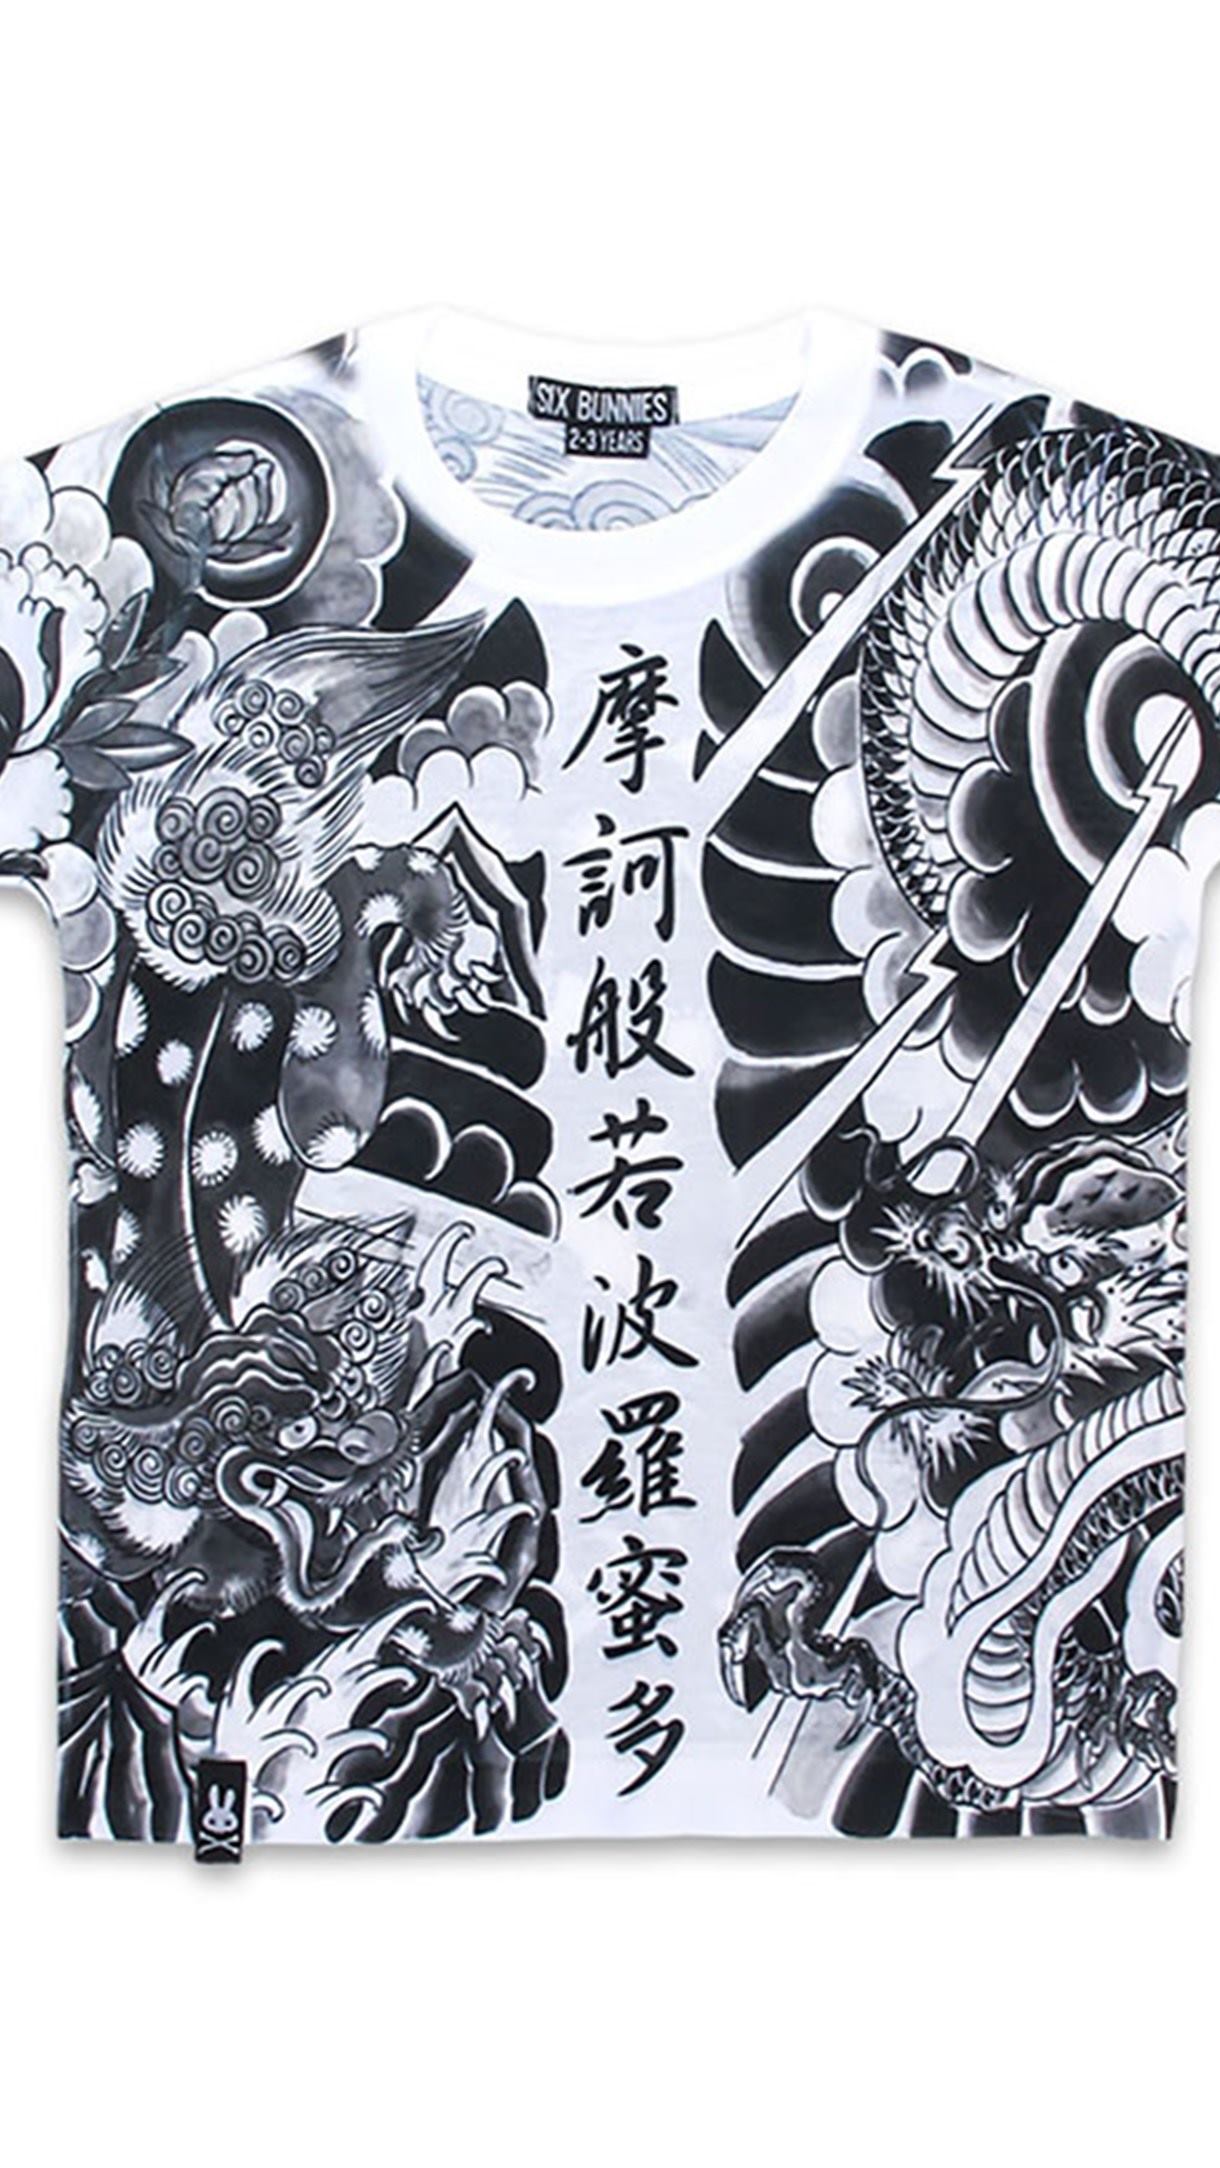 SIX BUNNIES
2-3 YEARS
摩訶般若波羅蜜多